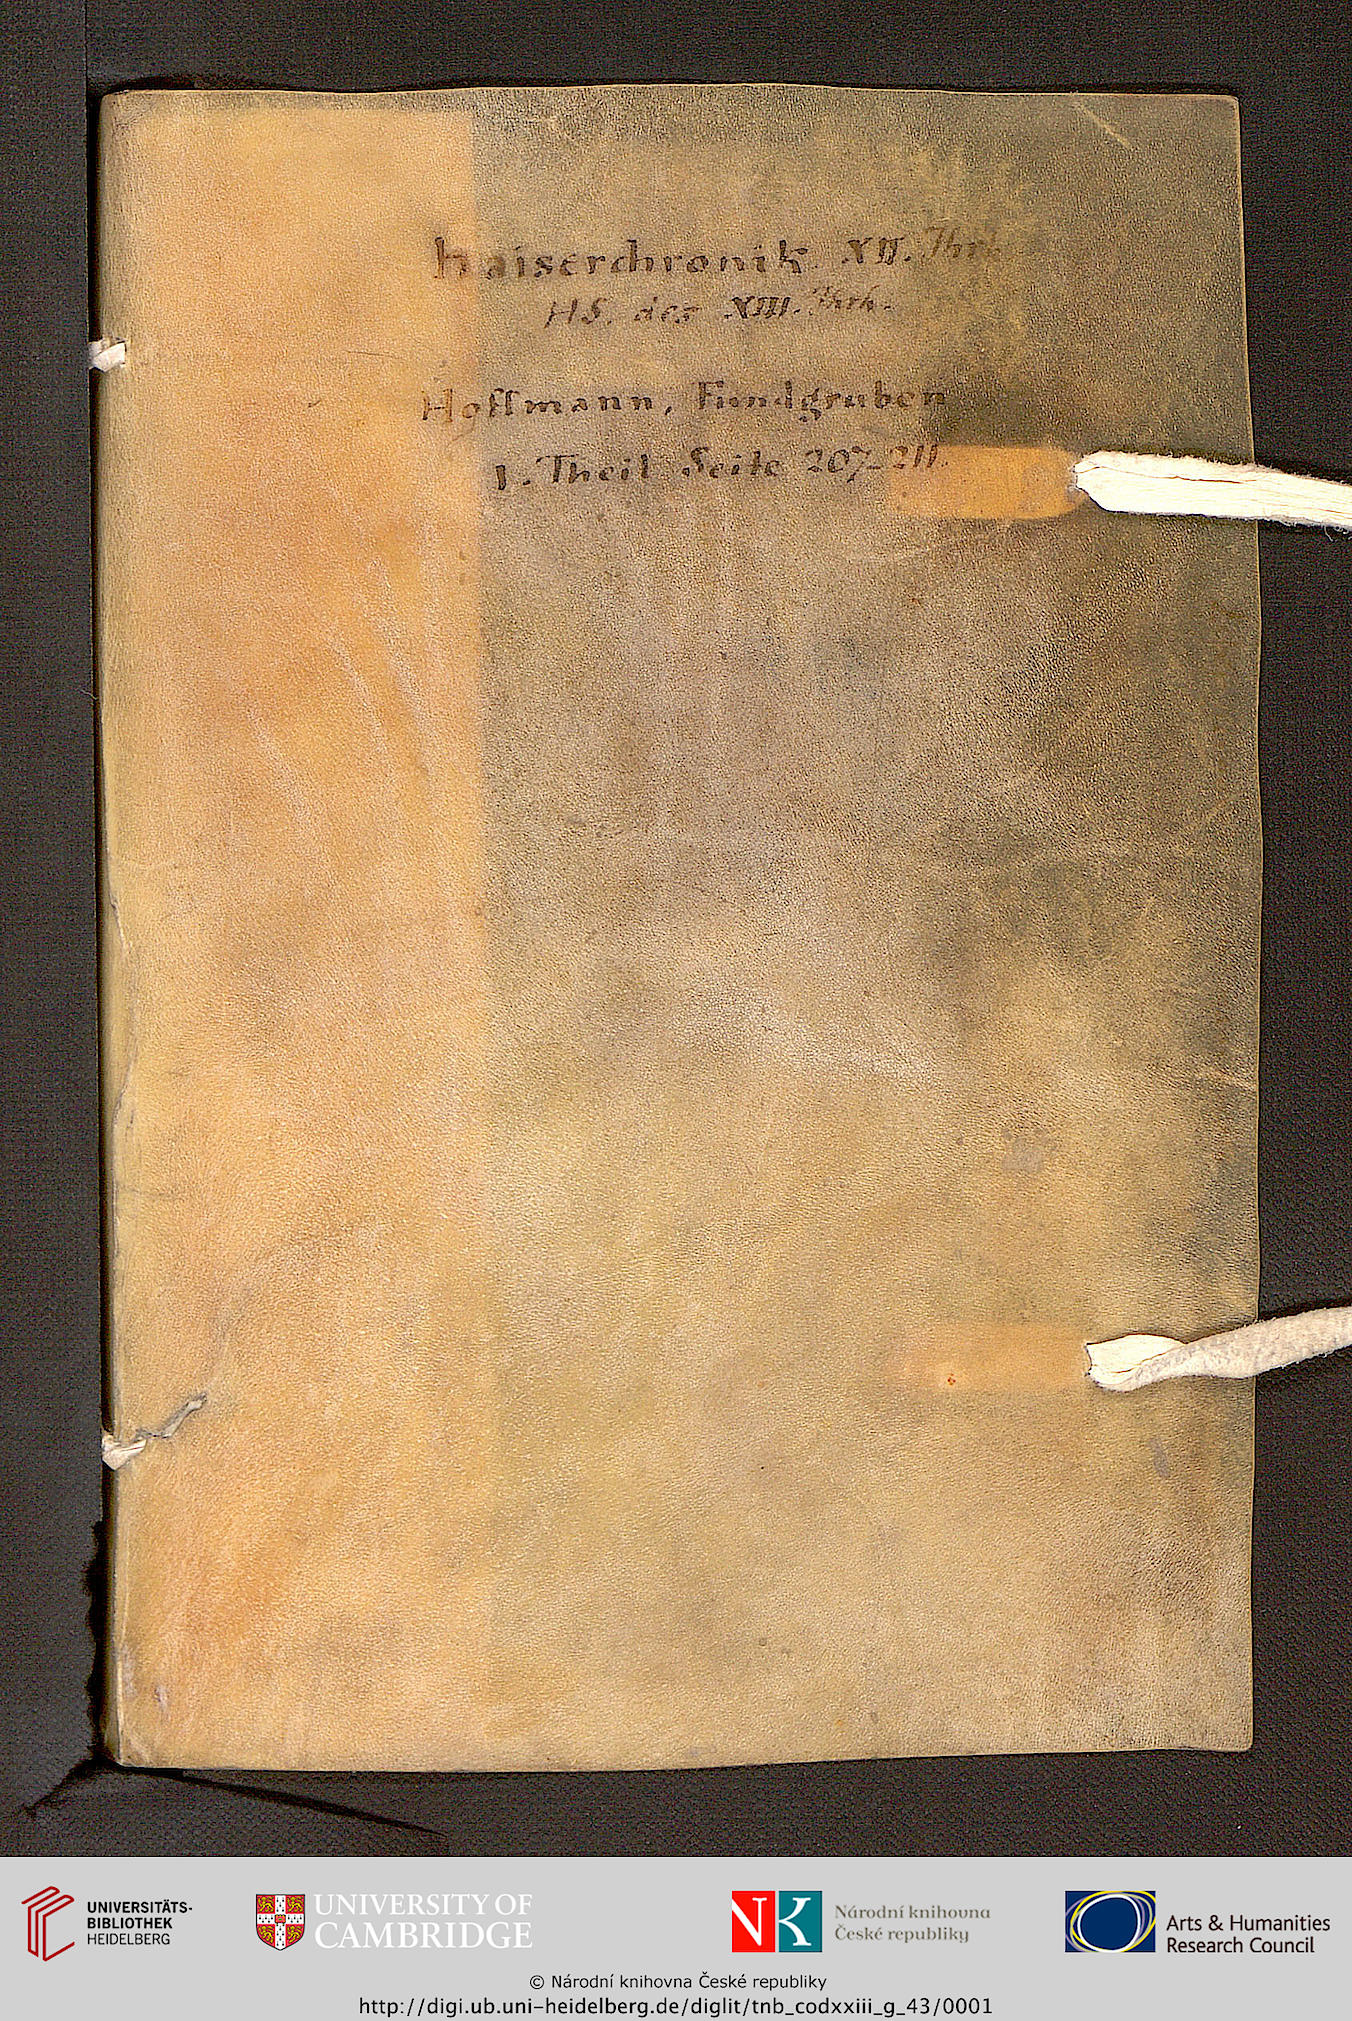 Kaiserchronik. XII. Jhrh.
HS. des XIII. Jhrh.
Hoffmann, Fundgruben
1. Theil Seite 207-211.
UNIVERSITÄTS-
BIBLIOTHEK
HEIDELBERG
UNIVERSITY OF
CAMBRIDGE
NK
Národní knihovna
České republiky
Arts & Humanities
Research Council
© Národní knihovna České republiky
http://digi.ub.uni-heidelberg.de/diglit/tnb_codxxiii_g_43/0001